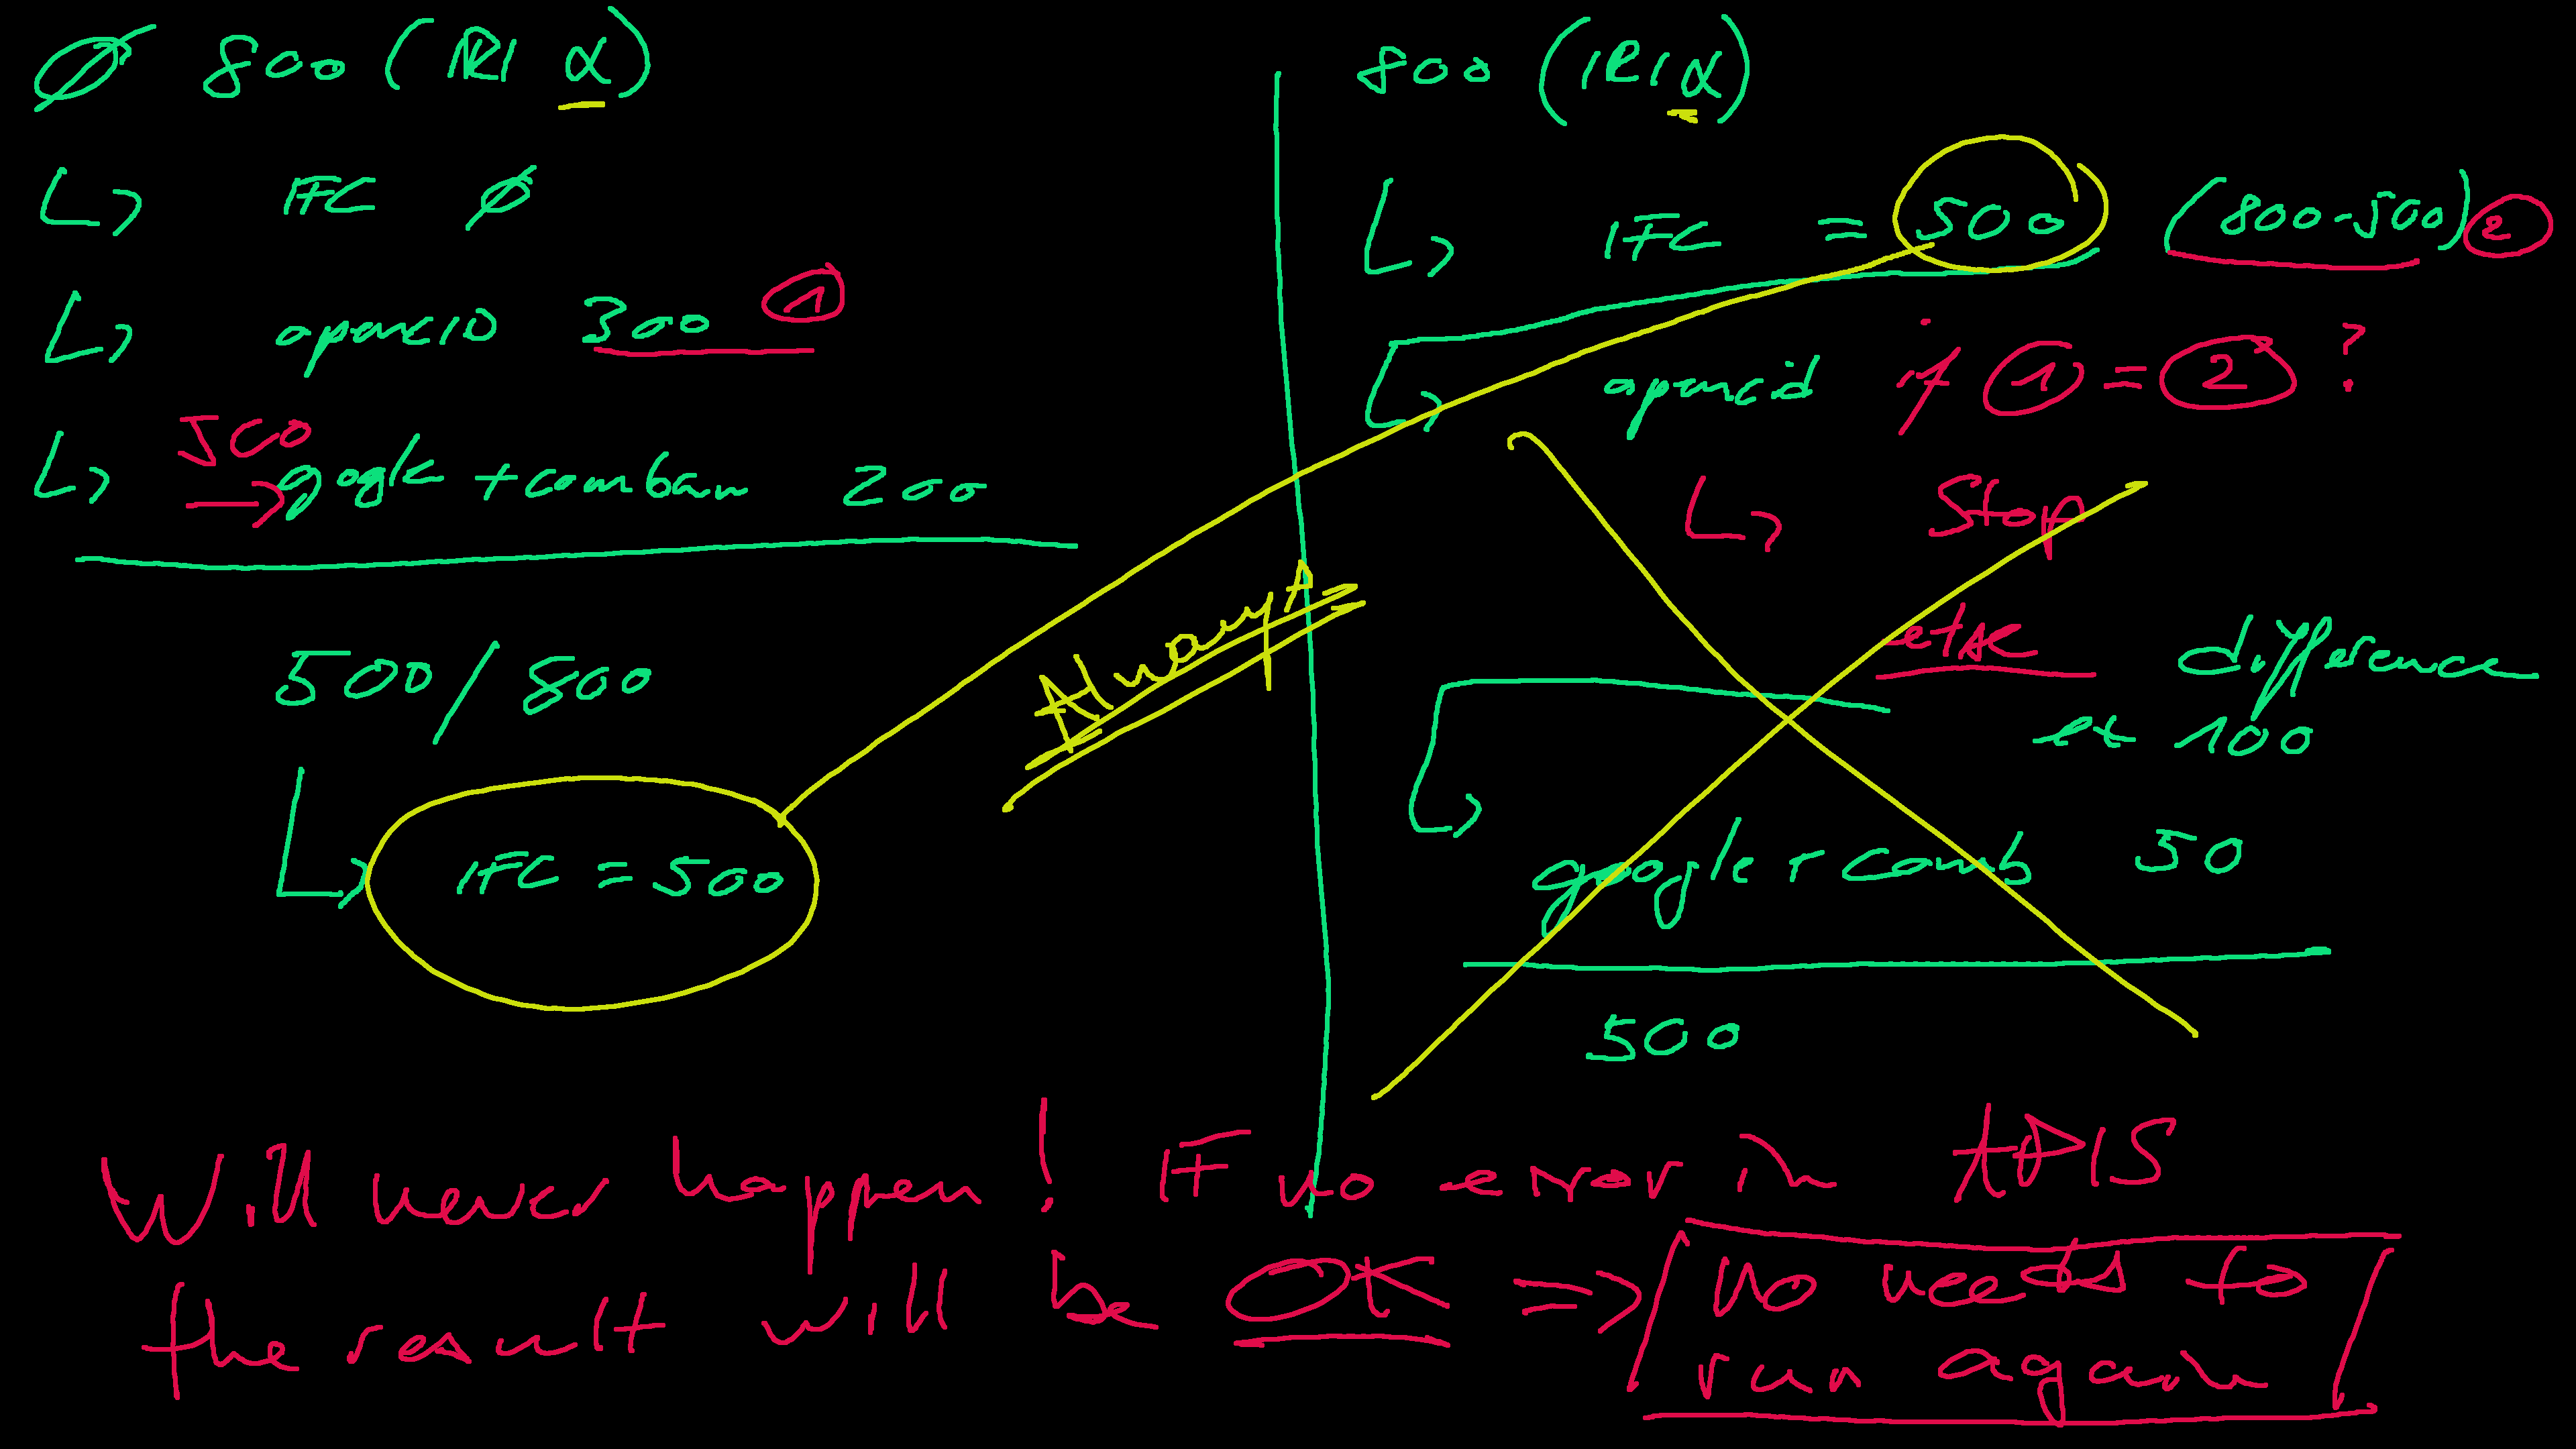 Ø 800 (IRI α)
↳ IFC Ø
↳ opencid 300 ①
↳ 500
⇒ gogle + combain 200
500/800
↳ IFC = 500
Always
800 (IRI α)
↳ IFC = 500 (800-500) ②
↳ opencid if ① = ② ?
↳ Stop
else difference
et 100
↳ google + comb 50
500
Will never happen! IF no error in APIS
the result will be OK ⇒ no needs to
run again